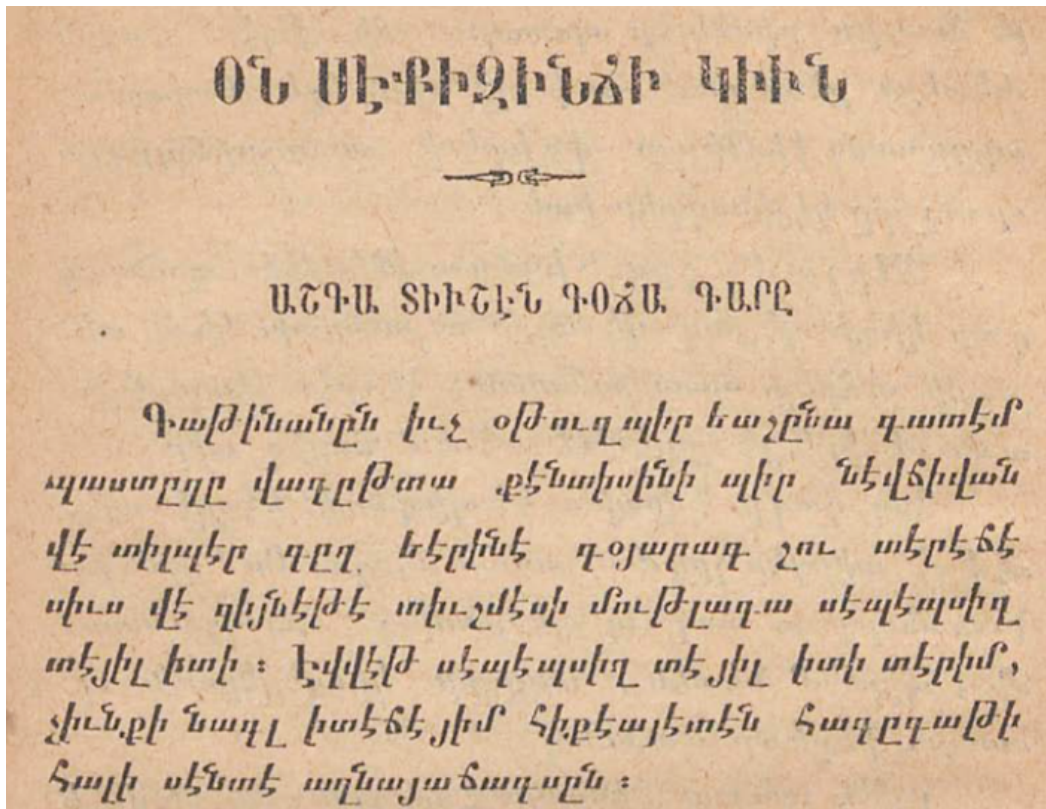 ՕՆ ՍԷՔԻԶԻՆՃԻ ԿԻՒՆ
ԱՇԳԱ ՏԻՒՇԷՆ ԳՕՃԱ ԳԱՐԸ
Գաթինանըն իւչ օթուզպիր եաշընա գատէմ
պաստըղը վագըթտա քէնտիսինի պիր նէվճիվան
վէ տիլպէր գըզ եէրինէ գօյարագ շու տէրէճէ
սիւս վէ զիյնէթէ տիւշմէսի մութլագա սէպէպսիզ
տէյիլ իտի ։ Էվվէթ սէպէպսիզ տէյիլ իտի տէրիմ,
չիւնքի նագլ իտէճէյիմ հիքեայէտէն հագըգաթի
հալի սէնտէ աղնայաճագսըն ։